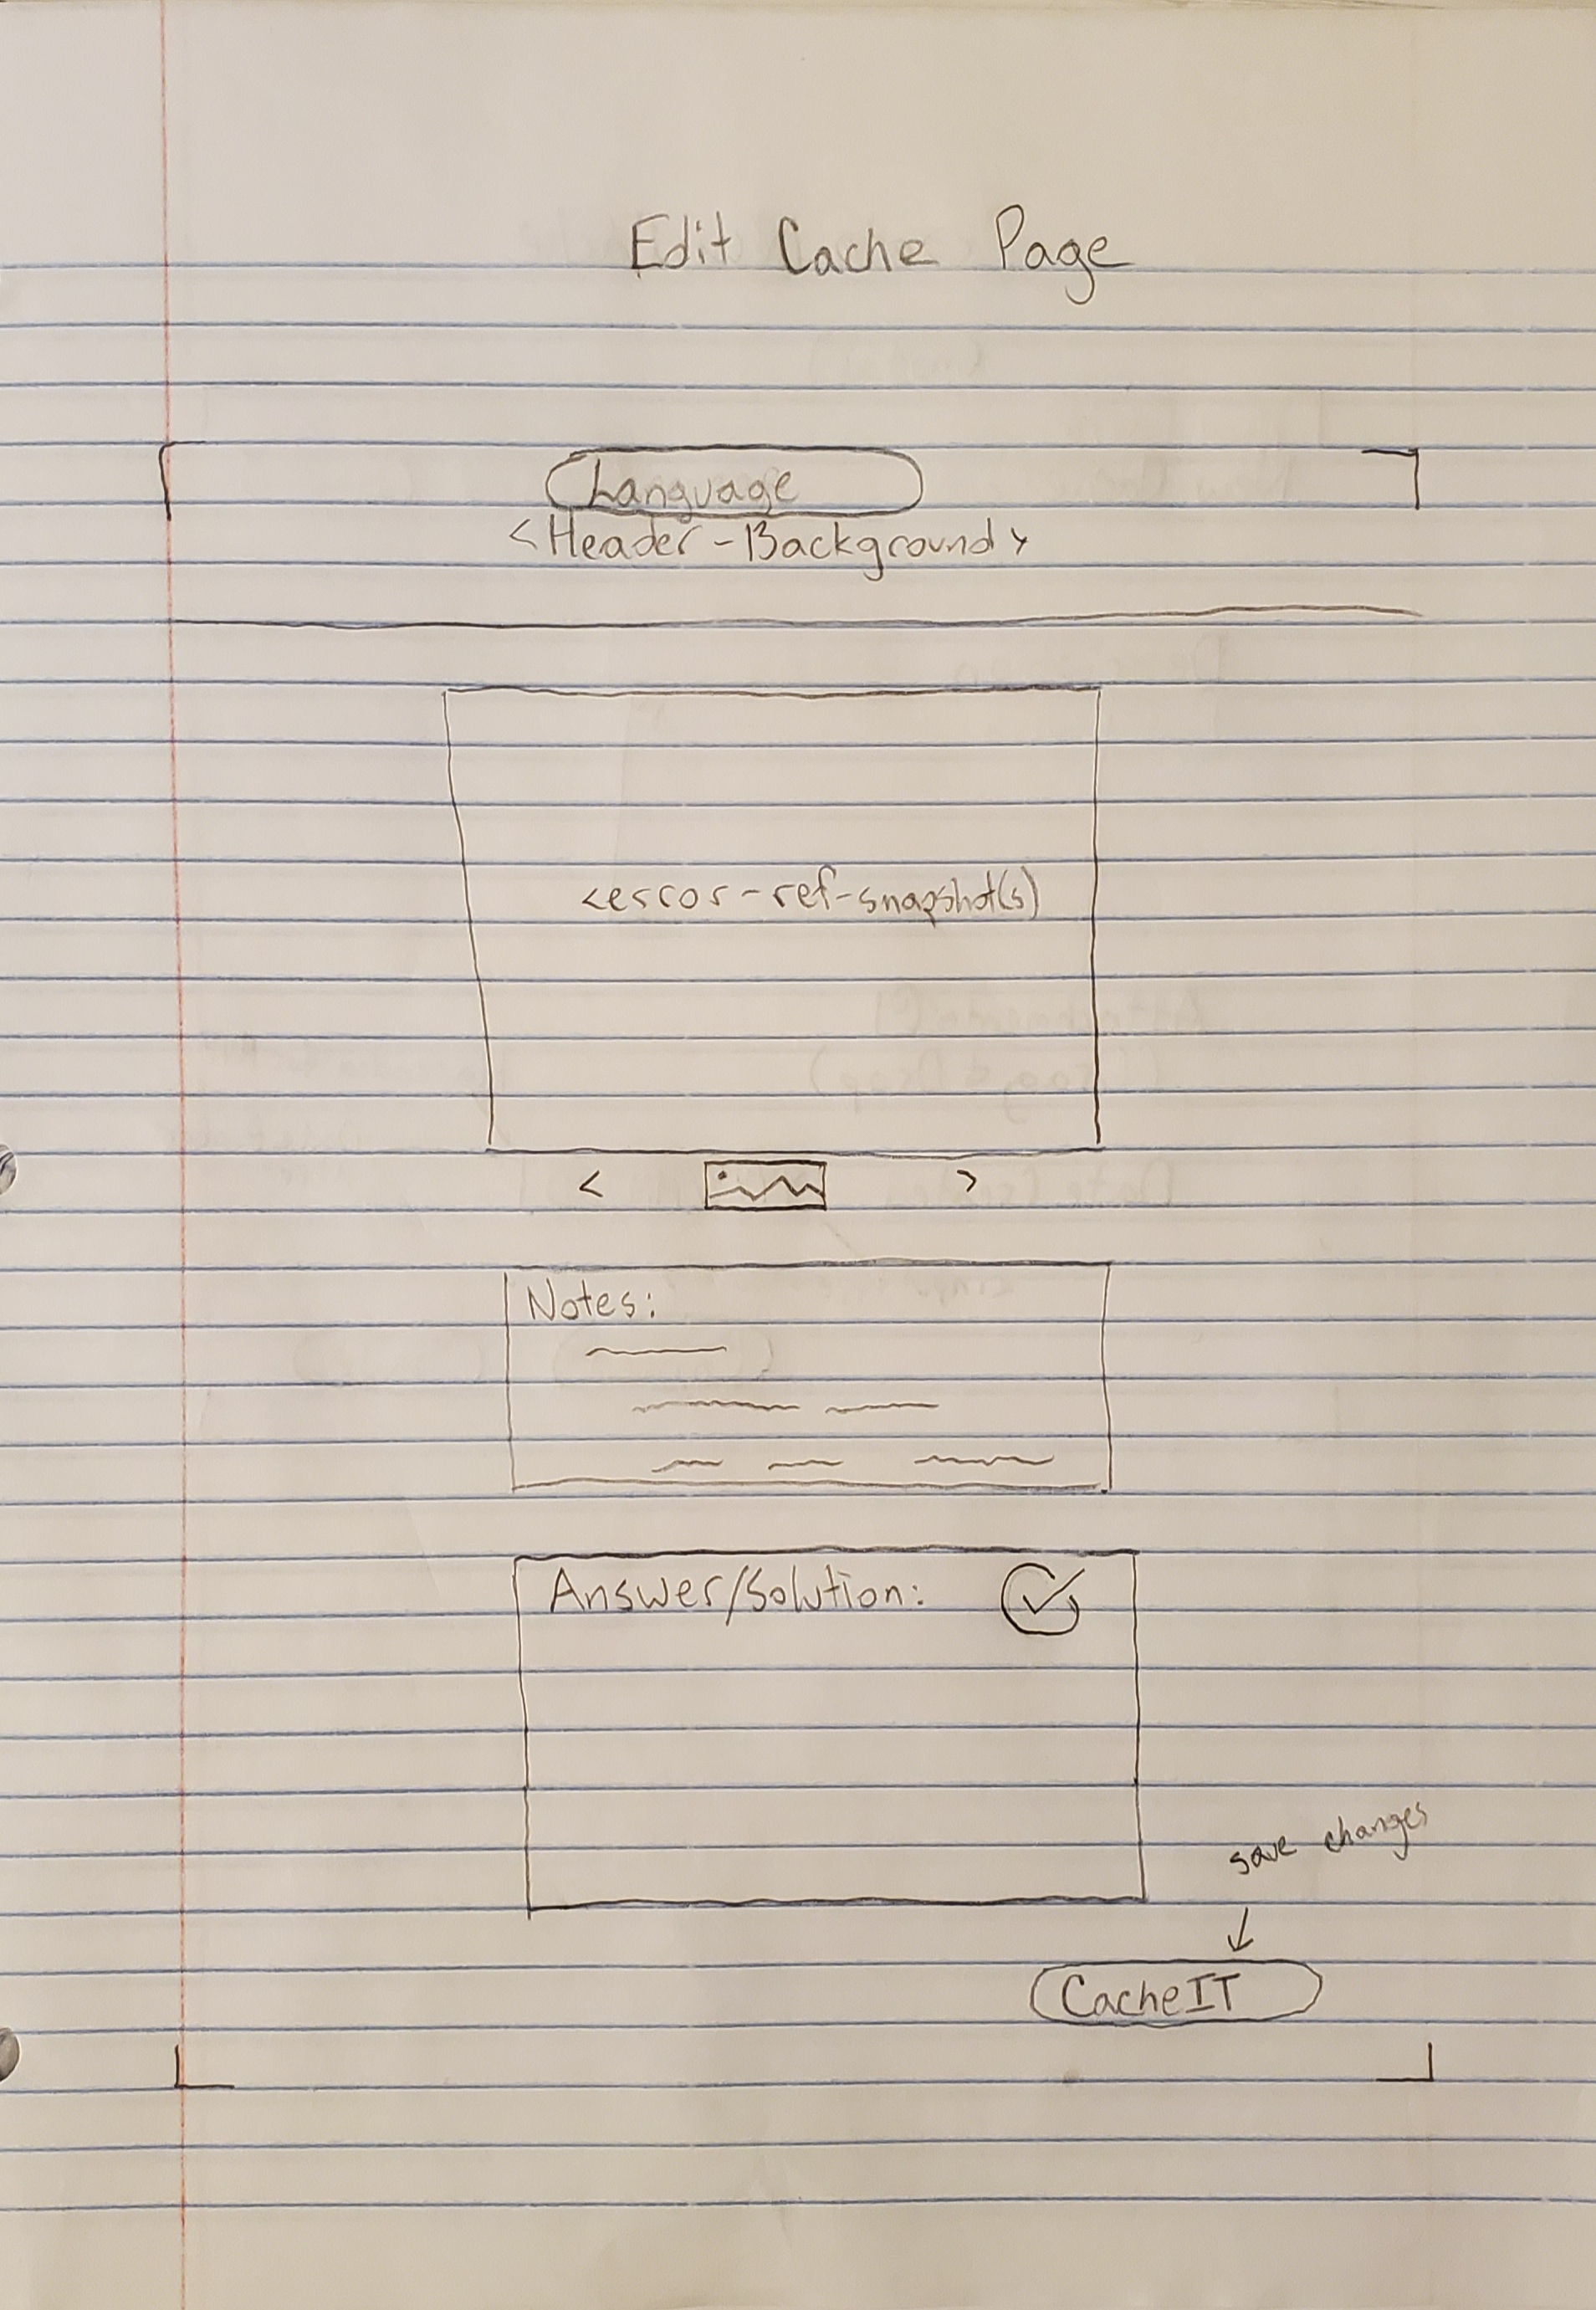 Edit Cache Page
Language
<Header-Background>
<error-ref-snapshot(s)
<
>
Notes:
Answer/Solution:
save changes
CacheIT